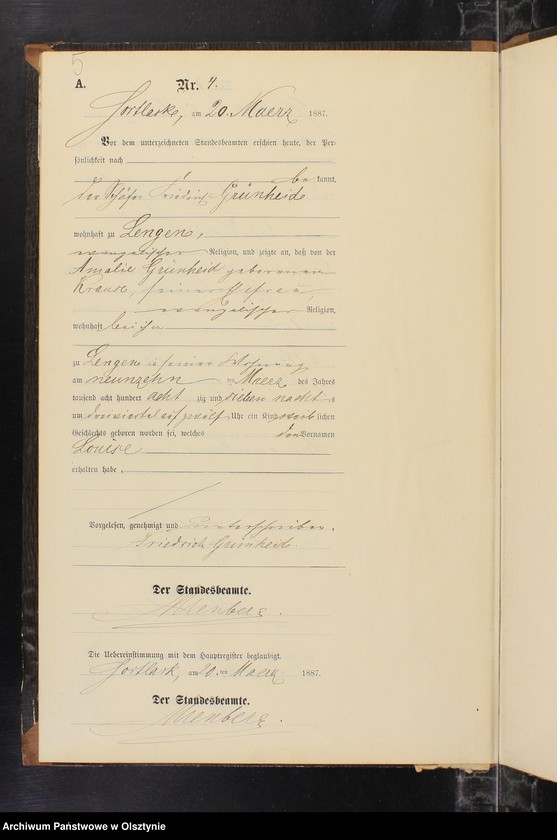 5
A.
Nr. 4.
Gortlack, am 20. Maerz 1887.
Vor dem unterzeichneten Standesbeamten erschien heute, der Per-
sönlichkeit nach
be kannt,
der Schäfer Friedrich Grünheid
wohnhaft zu Lengen,
evangelischer Religion, und zeigte an, daß von der
Amalie Grünheid geborenen
Krause, seiner Ehefrau,
evangelischer Religion,
wohnhaft bei ihm
zu Lengen in seiner Wohnung
am neunzehn ten Maerz des Jahres
tausend acht hundert acht zig und sieben nachts
um dreiviertel auf zwölf Uhr ein Kind weib lichen
Geschlechts geboren worden sei, welches den Vornamen
Louise
erhalten habe.
Vorgelesen, genehmigt und unterschrieben.
Friedrich Grünheid.
Der Standesbeamte.
Die Uebereinstimmung mit dem Hauptregister beglaubigt.
Gortlack, am 20. ten Maerz 1887.
Der Standesbeamte.
Archiwum Państwowe w Olsztynie